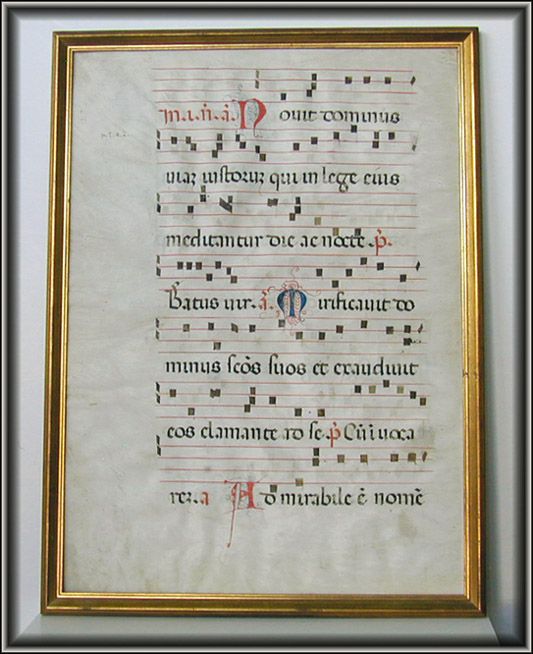 Novit dominus
viaȝ iustoruȝ qui in lege eius
meditantur die ac nocte. p̄.
Beatus vir. a. Mirificavit do
minus sc̄os suos et exaudivit
eos clamante ad se. p̄ Cū īvoca
reȝ. a Ad mirabile ē nomē